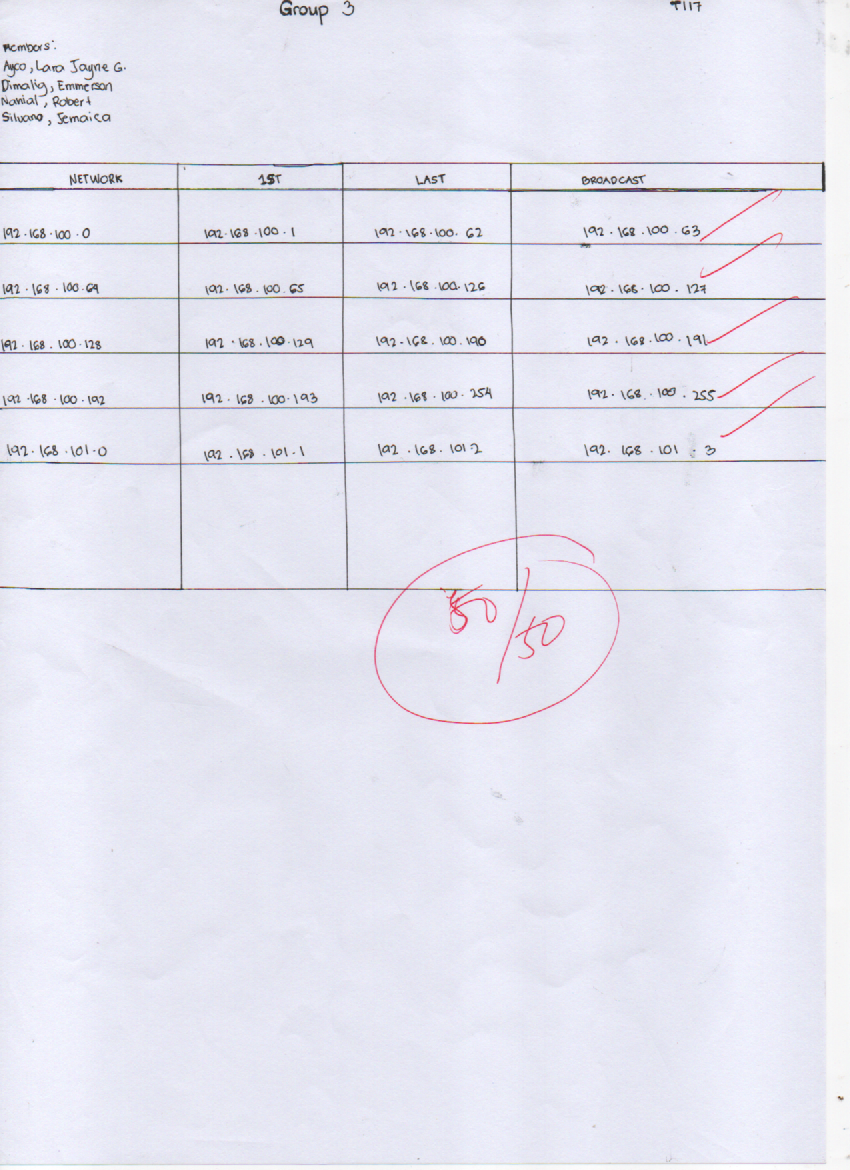 Group 3 T117
Members:
Ayco, Lara Jayne G.
Dimalig, Emmerson
Nanial, Robert
Silvano, Jemaica
NETWORK 1ST LAST BROADCAST
192.168.100.0 192.168.100.1 192.168.100.62 192.168.100.63
192.168.100.64 192.168.100.65 192.168.100.126 192.168.100.127
192.168.100.128 192.168.100.129 192.168.100.190 192.168.100.191
192.168.100.192 192.168.100.193 192.168.100.254 192.168.100.255
192.168.101.0 192.168.101.1 192.168.101.2 192.168.101.3
50/50